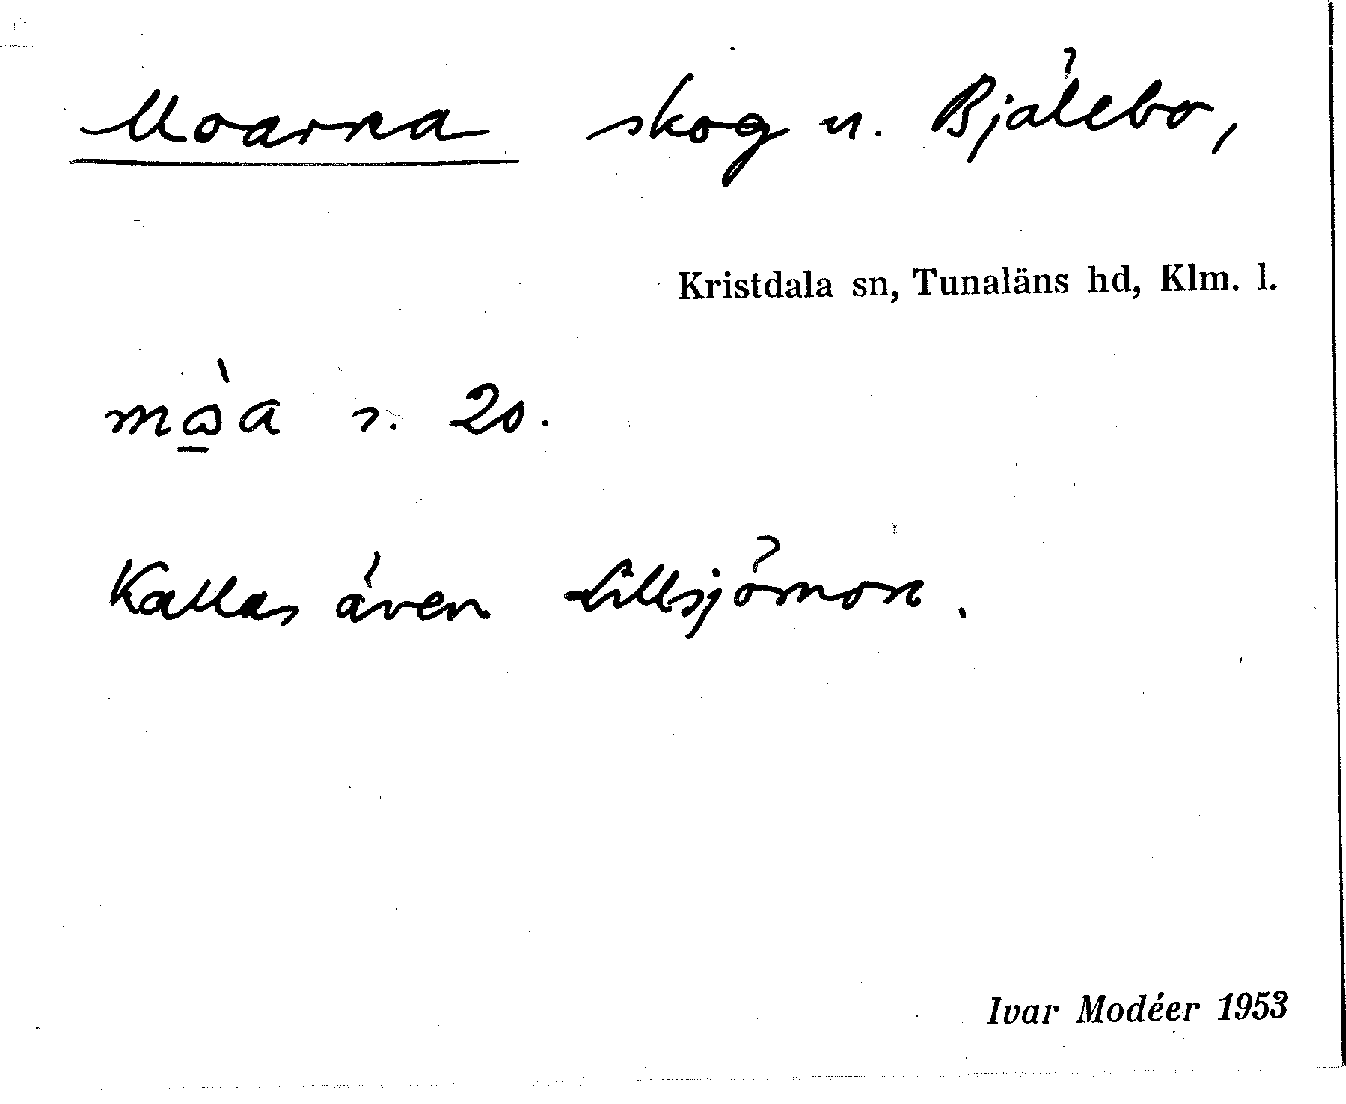 Moarna skog u. Bjälebo,
Kristdala sn, Tunaläns hd, Klm. l.
20.
Kallas även Lillsjömon.
Ivar Modéer 1953